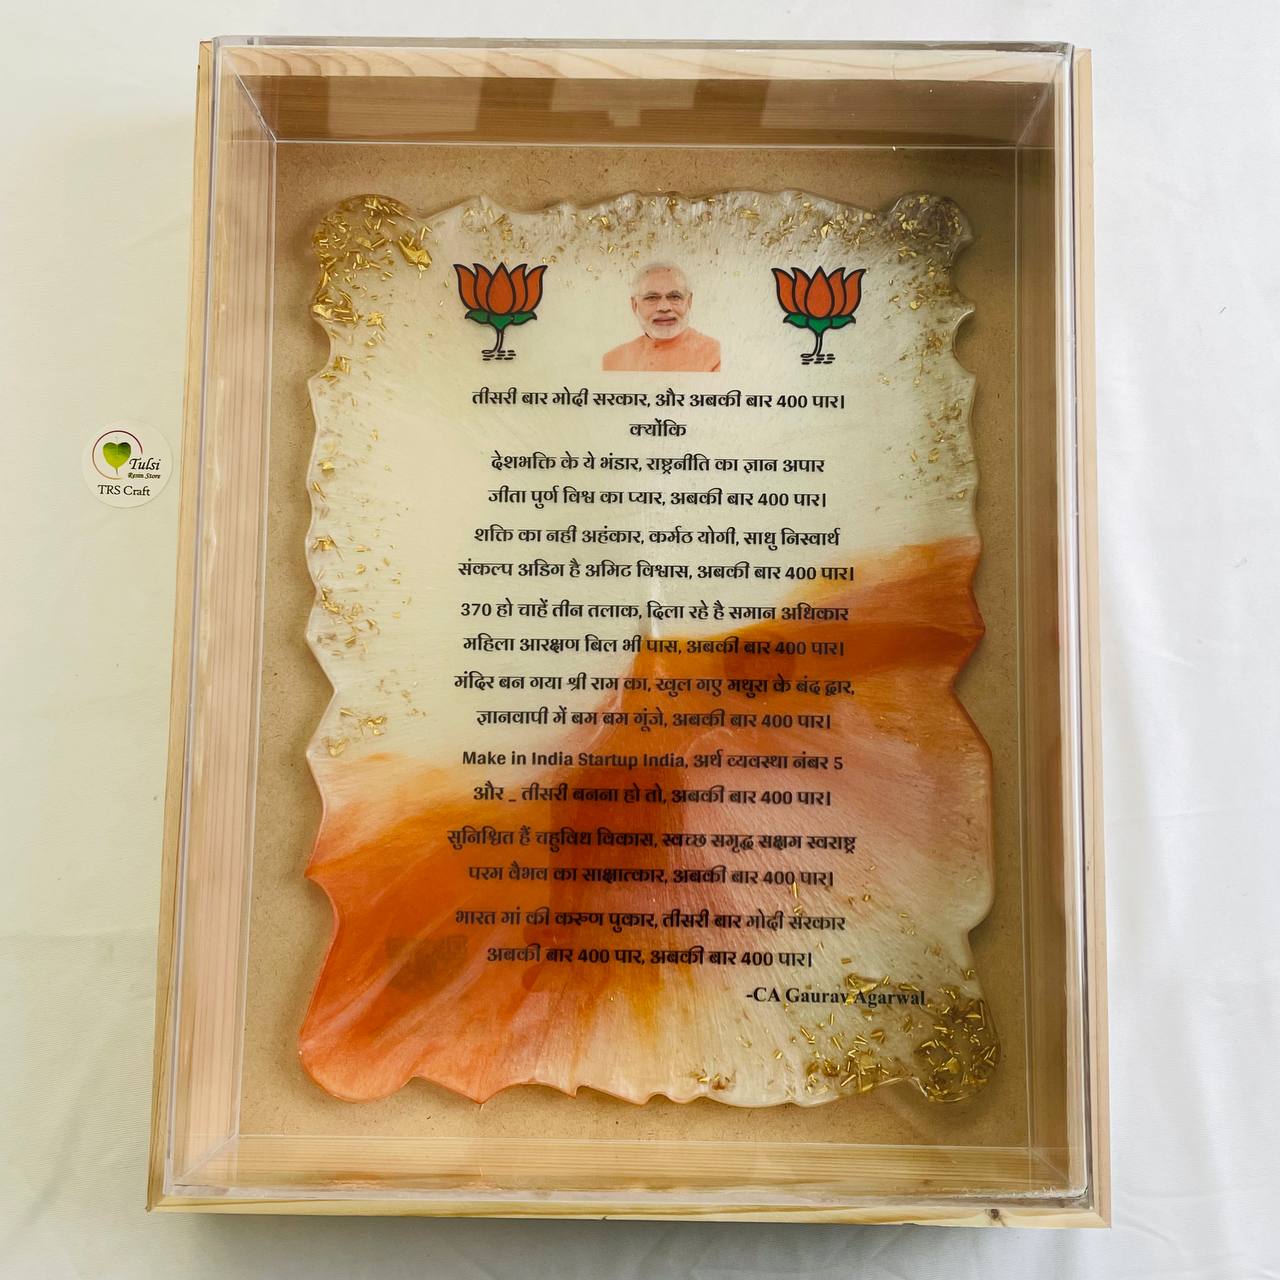 तीसरी बार मोदी सरकार, और अबकी बार 400 पार।
क्योंकि
देशभक्ति के ये भंडार, राष्ट्रनीति का ज्ञान अपार
जीता पुर्ण विश्व का प्यार, अबकी बार 400 पार।
शक्ति का नही अहंकार, कर्मठ योगी, साधु निस्वार्थ
संकल्प अडिग है अमिट विश्वास, अबकी बार 400 पार।
370 हो चाहें तीन तलाक, दिला रहे है समान अधिकार
महिला आरक्षण बिल भी पास, अबकी बार 400 पार।
मंदिर बन गया श्री राम का, खुल गए मथुरा के बंद द्वार,
ज्ञानवापी में बम बम गूंजे, अबकी बार 400 पार।
Make in India Startup India, अर्थ व्यवस्था नंबर 5
और _ तीसरी बनना हो तो, अबकी बार 400 पार।
सुनिश्चित हैं चहुविध विकास, स्वच्छ समृद्ध सक्षम स्वराष्ट्र
परम वैभव का साक्षात्कार, अबकी बार 400 पार।
भारत मां की करुण पुकार, तीसरी बार मोदी सरकार
अबकी बार 400 पार, अबकी बार 400 पार।
-CA Gaurav Agarwal
Tulsi
Resin Store
TRS Craft